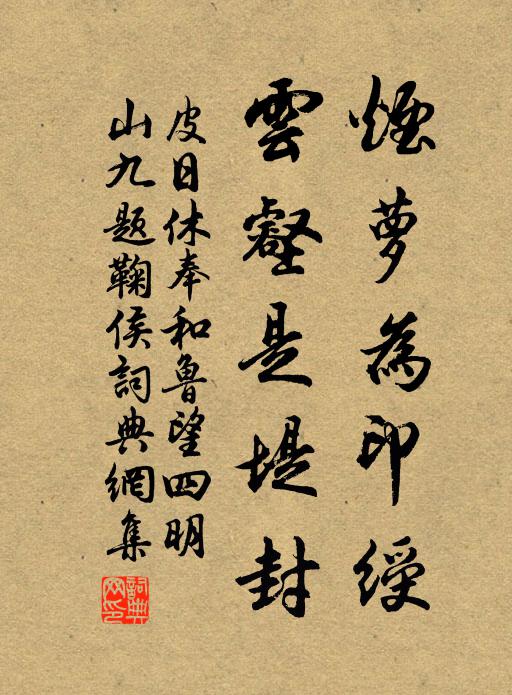 煙蘿為印綬
雲壑是堤封
皮日休奉和魯望四明
山九題鞠侯詞典網集
詞典网印